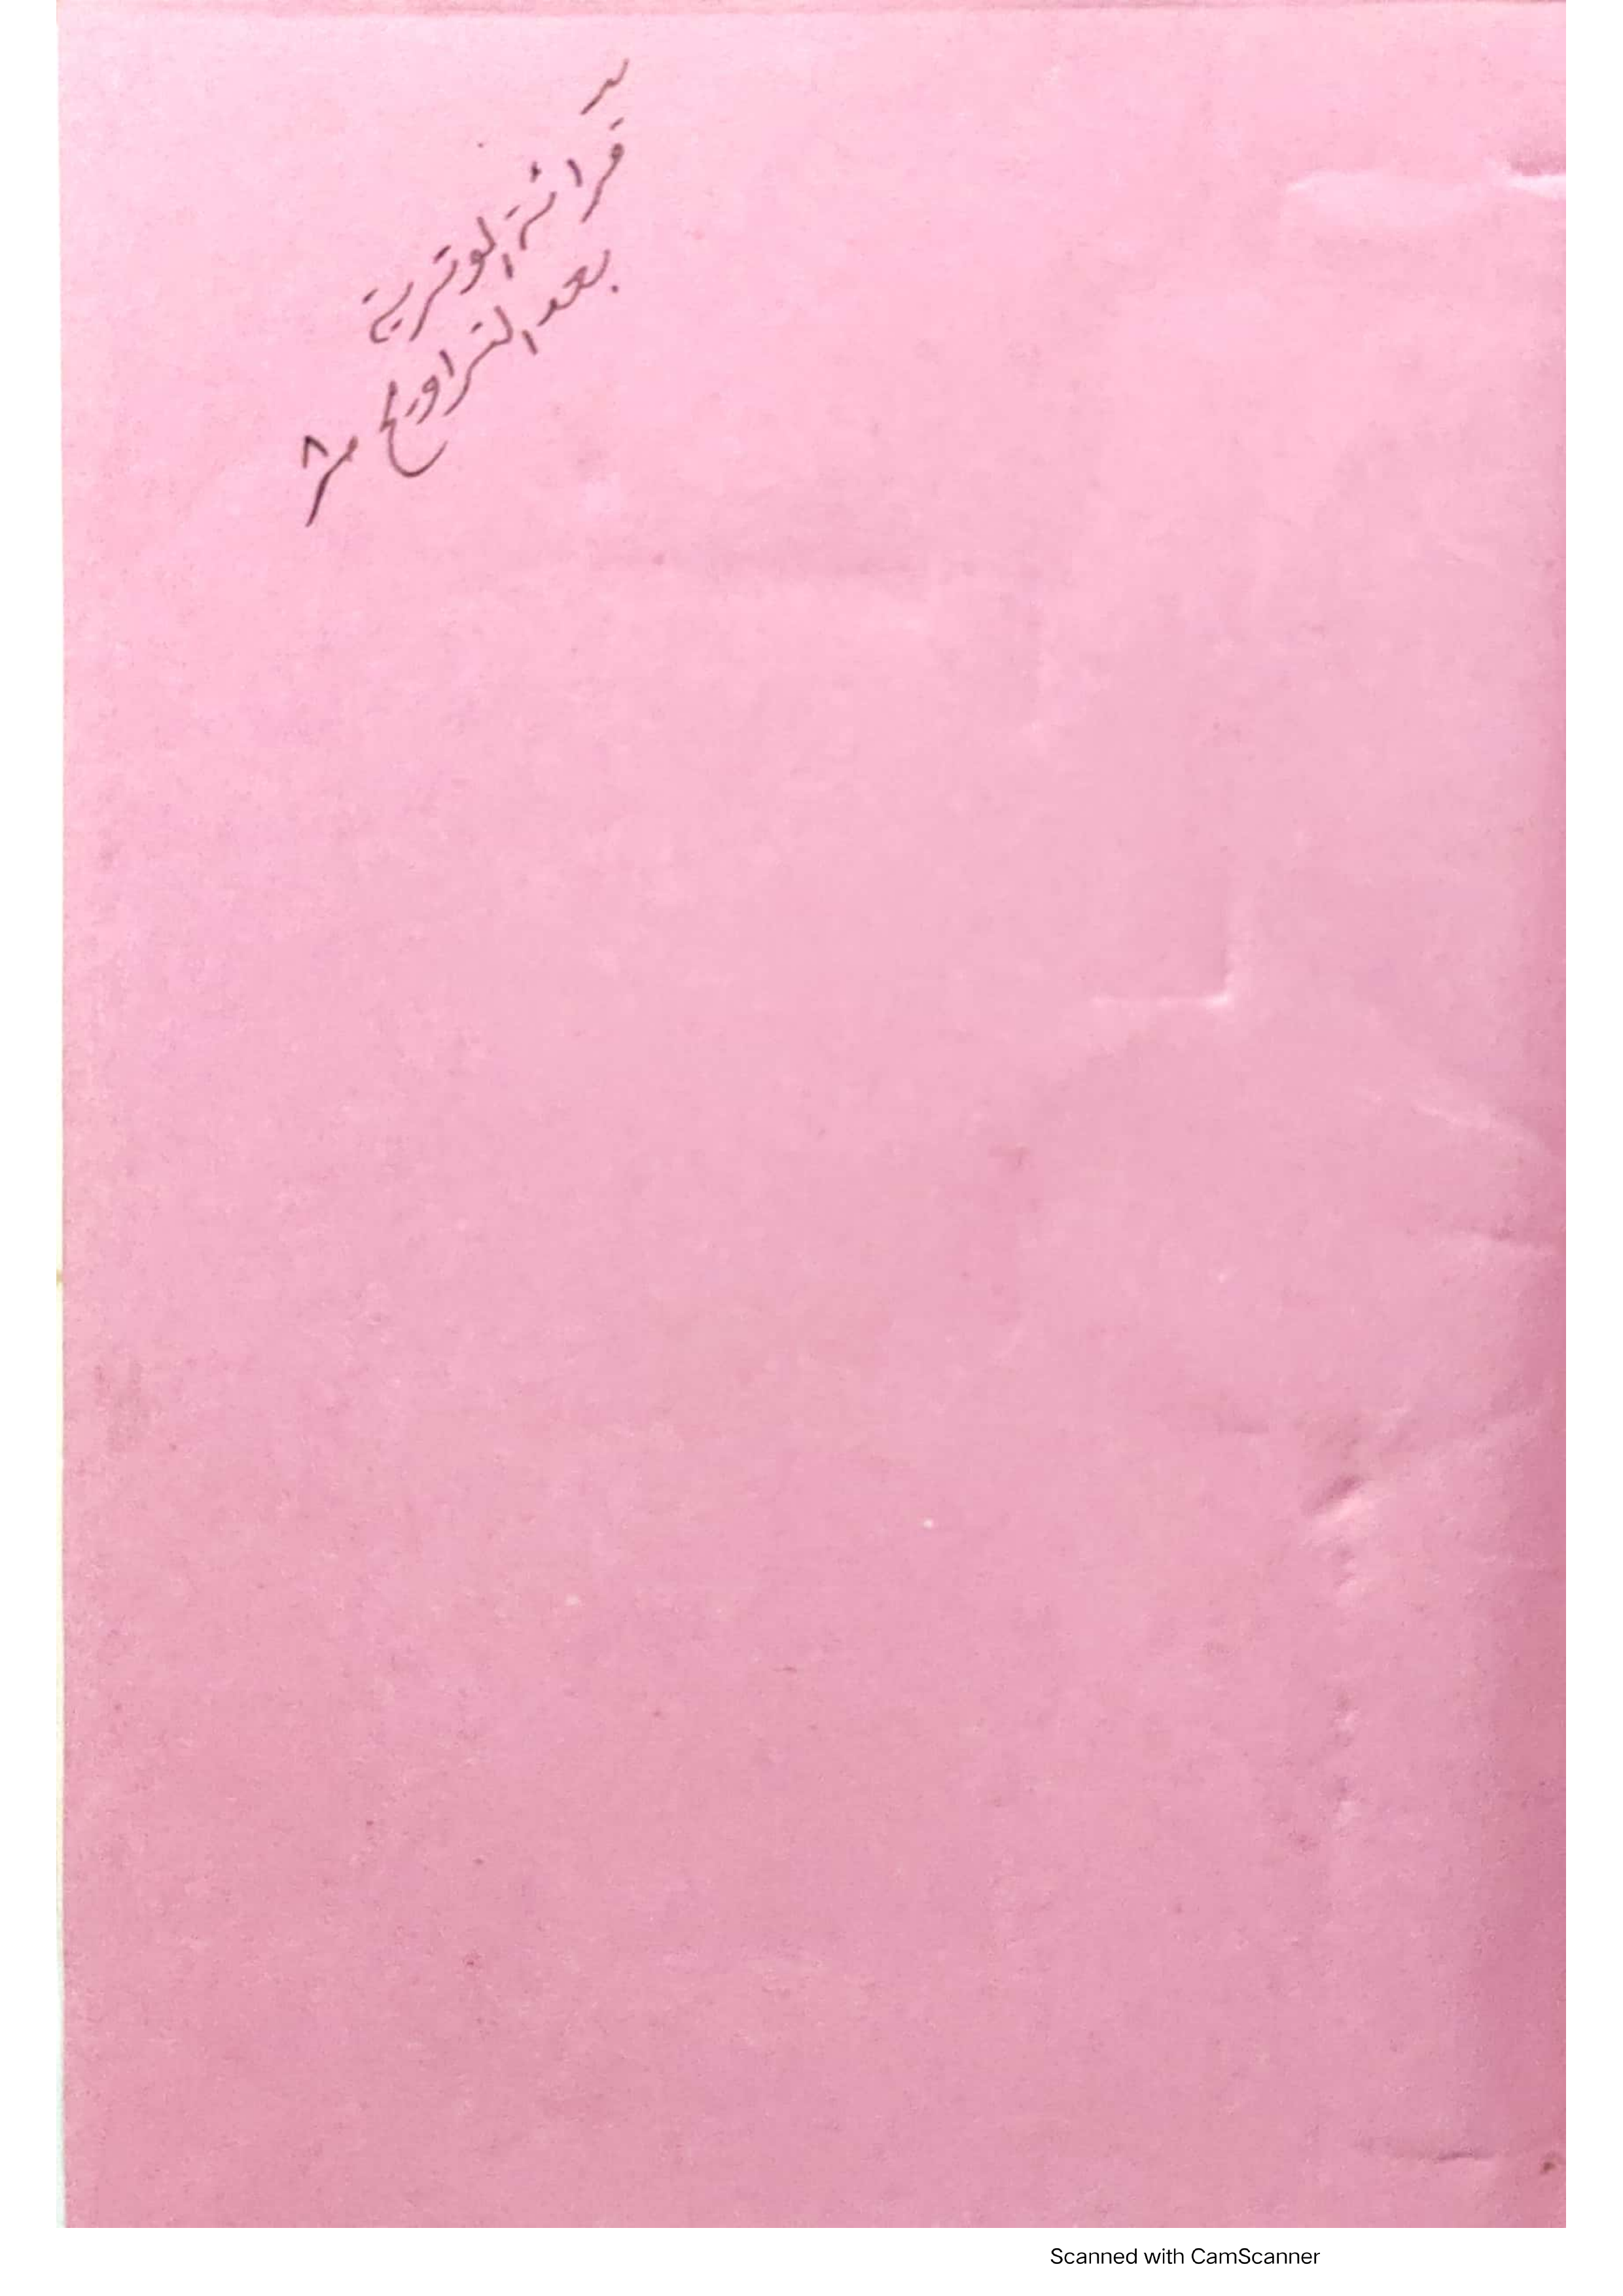 قرائة الوترية
بعد التراويح صـ ٨
Scanned with CamScanner